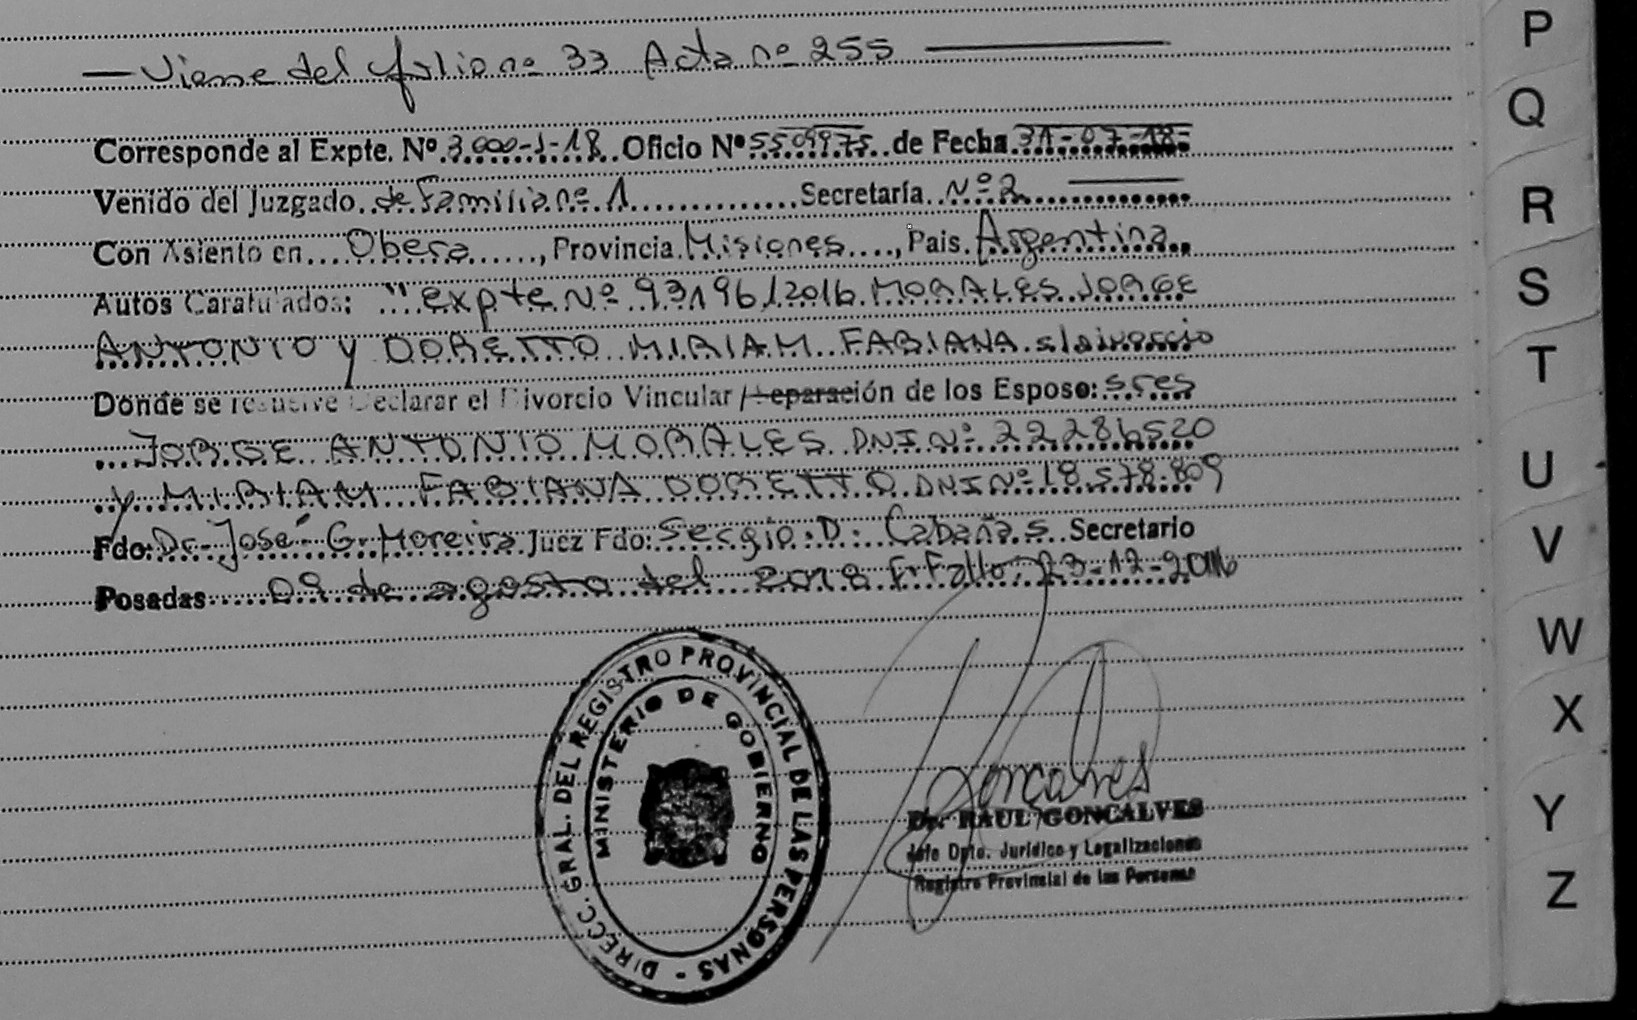 — Viene del folio nº 33 Acta nº 255 —
Corresponde al Expte. Nº 3.000-J-18. Oficio Nº 5509975 de Fecha 31-07-18-
Venido del Juzgado de Familia nº 1 Secretaría Nº 2 —
Con Asiento en Obera, Provincia Misiones, Pais Argentina
Autos Caratulados: "expte Nº 93196/2016 MORALES JORGE
ANTONIO y DORETTO MIRIAM FABIANA s/divorcio
Donde se resuelve Declarar el Divorcio Vincular / Separación de los Esposo: sres
JORGE ANTONIO MORALES DNI Nº 22286520
y MIRIAM FABIANA DORETTO DNI Nº 18.578.809
Fdo: Dr. José G. Moreira Juez Fdo: Sergio D. Cabañas Secretario
Posadas 09 de agosto del 2018 F. Fallo 23-12-2016
DIRECC. GRAL. DEL REGISTRO PROVINCIAL DE LAS PERSONAS -
MINISTERIO DE GOBIERNO
Goncalves
Dr. RAUL GONCALVES
Jefe Dpto. Jurídico y Legalizaciones
Registro Provincial de las Personas
P
Q
R
S
T
U
V
W
X
Y
Z